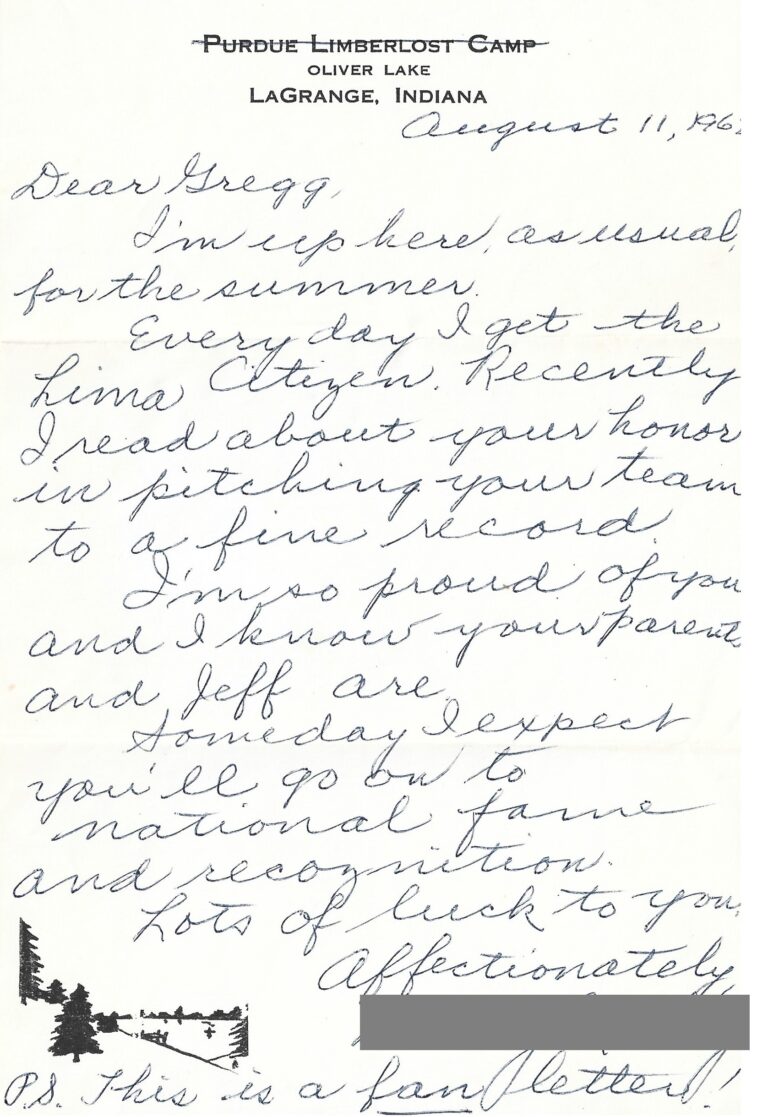 PURDUE LIMBERLOST CAMP
OLIVER LAKE
LAGRANGE, INDIANA
August 11, 196
Dear Gregg,
I'm up here, as usual,
for the summer.
Every day I get the
Lima Citizen. Recently
I read about your honor
in pitching your team
to a fine record.
I'm so proud of you
and I know your parents
and Jeff are.
Someday I expect
you'll go on to
national fame
and recognition.
Lots of luck to you,
Affectionately,
P.S. This is a fan letter!